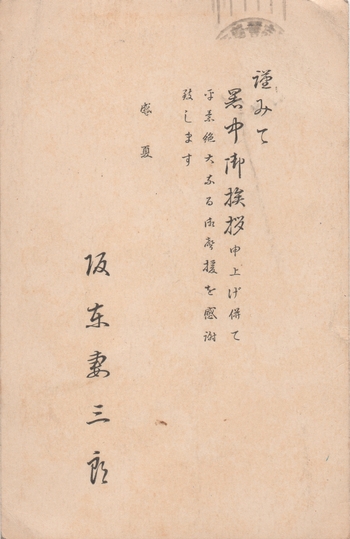 謹みて
暑中御挨拶申上げ併て
平素絶大なる御声援を感謝
致します
盛夏
阪東妻三郎